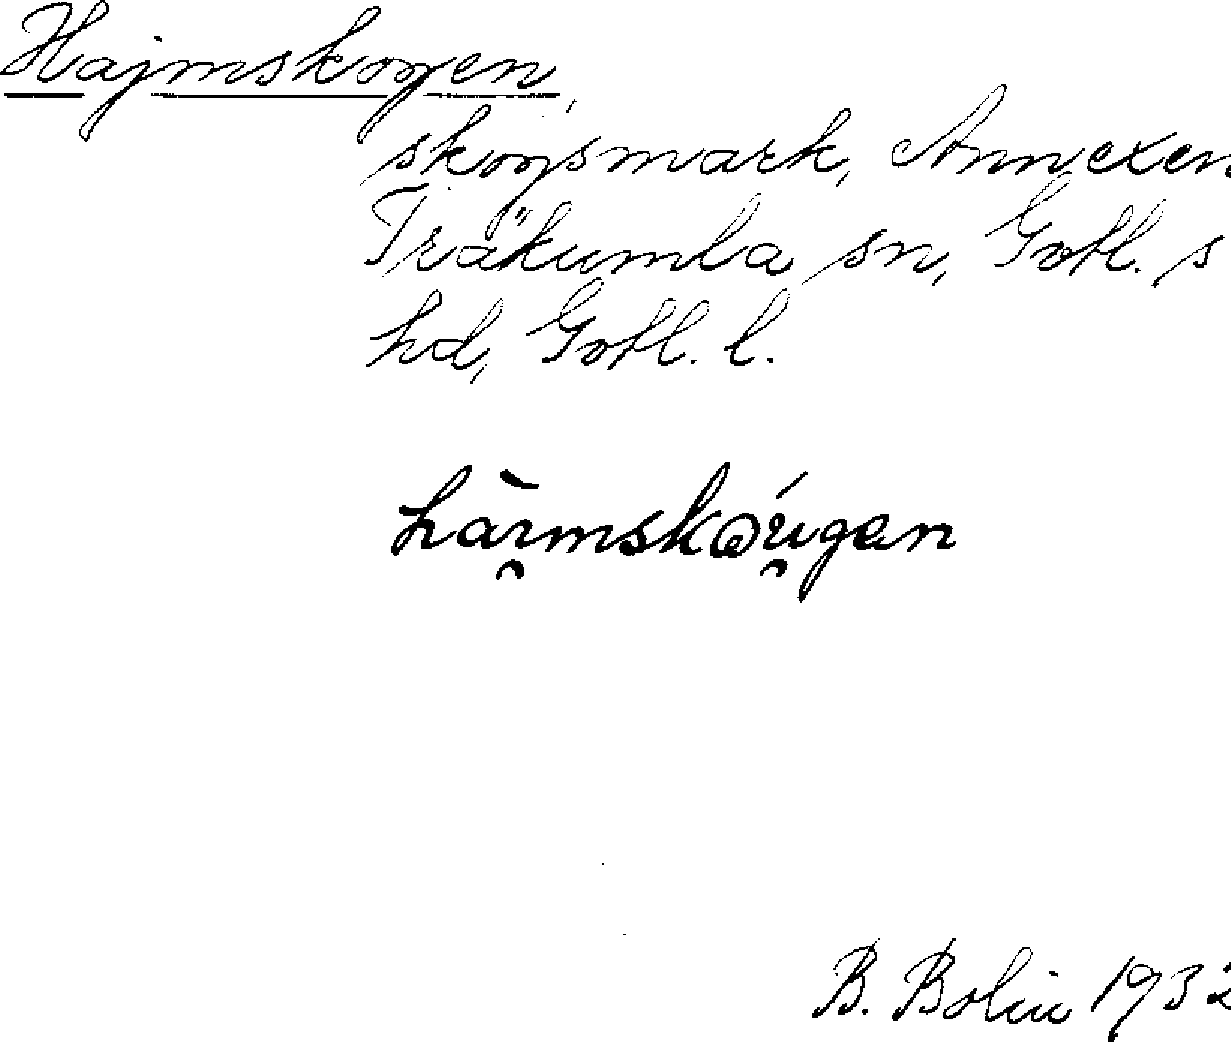 Hajmskogen,
skogsmark, Annexen
Träkumla sn, Gotl. s
hd, Gotl. l.
B. Bolin 1932